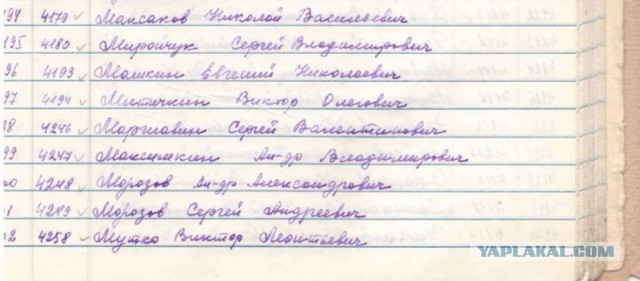 194 4179 Максаков Николай Васильевич
195 4180 Мирончук Сергей Владимирович
96 4193 Машкин Евгений Николаевич
97 4194 Митичкин Виктор Олегович
98 4246 Маршавин Сергей Валентинович
99 4247 Максимкин Ал-др Владимирович
00 4248 Морозов Ал-др Александрович
1 4249 Морозов Сергей Андреевич
02 4258 Мутко Виктор Леонтьевич
YAPLAKAL.COM